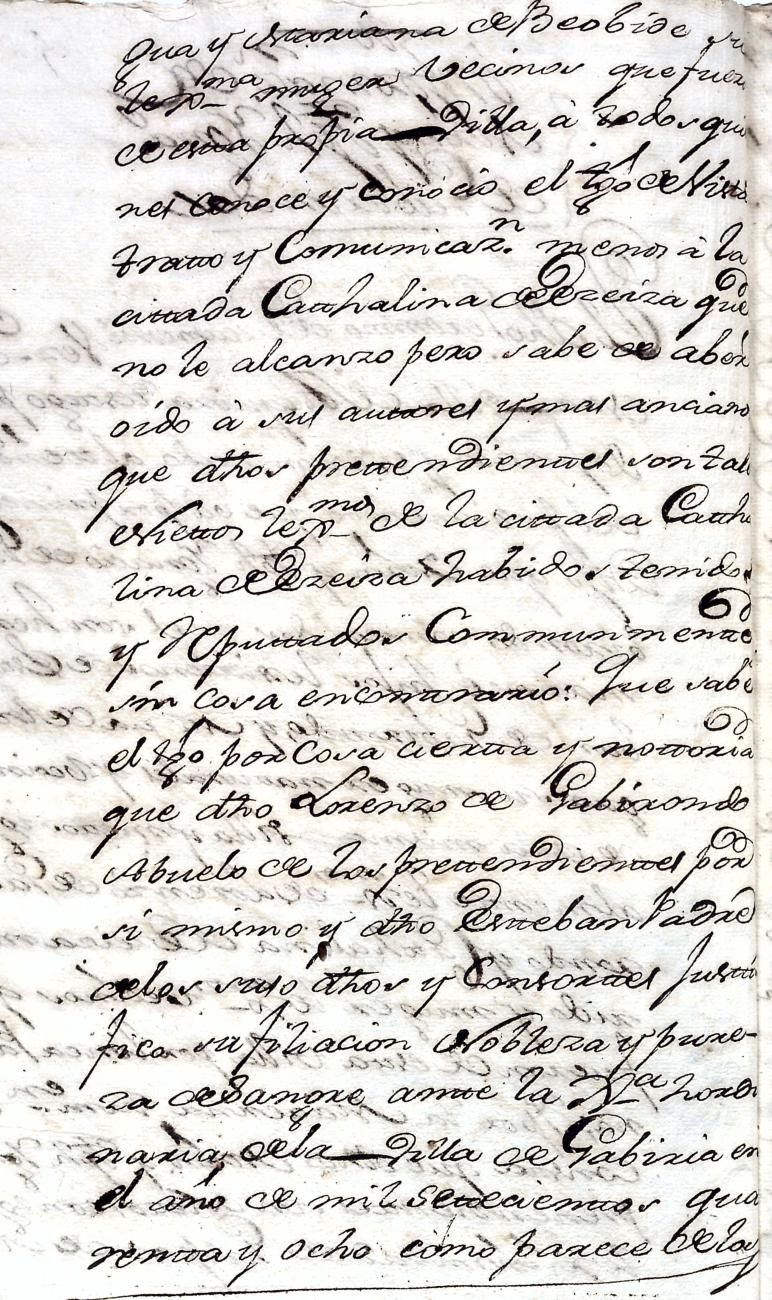 gua y Mariana de Beobide su
lexma muger Vecinos que fuer
de esta propia Villa, à todos quie
nes conoce y conocio el tgo de Vista
tratto y Comunicazn. menos à la
cittada Catthalina de Ereiza que
no le alcanzo pero sabe de aber
oido à sus autores y mas anciano
que dhos prettendienttes son tal
Niettos lexmos de la cittada Catth
lina de Ereiza habidos tenidos
y Reputtados Communmentte
sin cosa en conttrario: Que sabe
el tgo por Cosa ciertta y nottoria
que dho Lorenzo de Gabirondo
Abuelo de los prettendienttes por
si mismo y dho Esteban Padre
de los suso dhos y Consortes Justi
fico su filiacion Nobleza y pure-
za de Sangre ante la Jta hordi
naria de la Villa de Gabiria en
el año de mil Settecienttos qua
rentta y ocho como parece de los